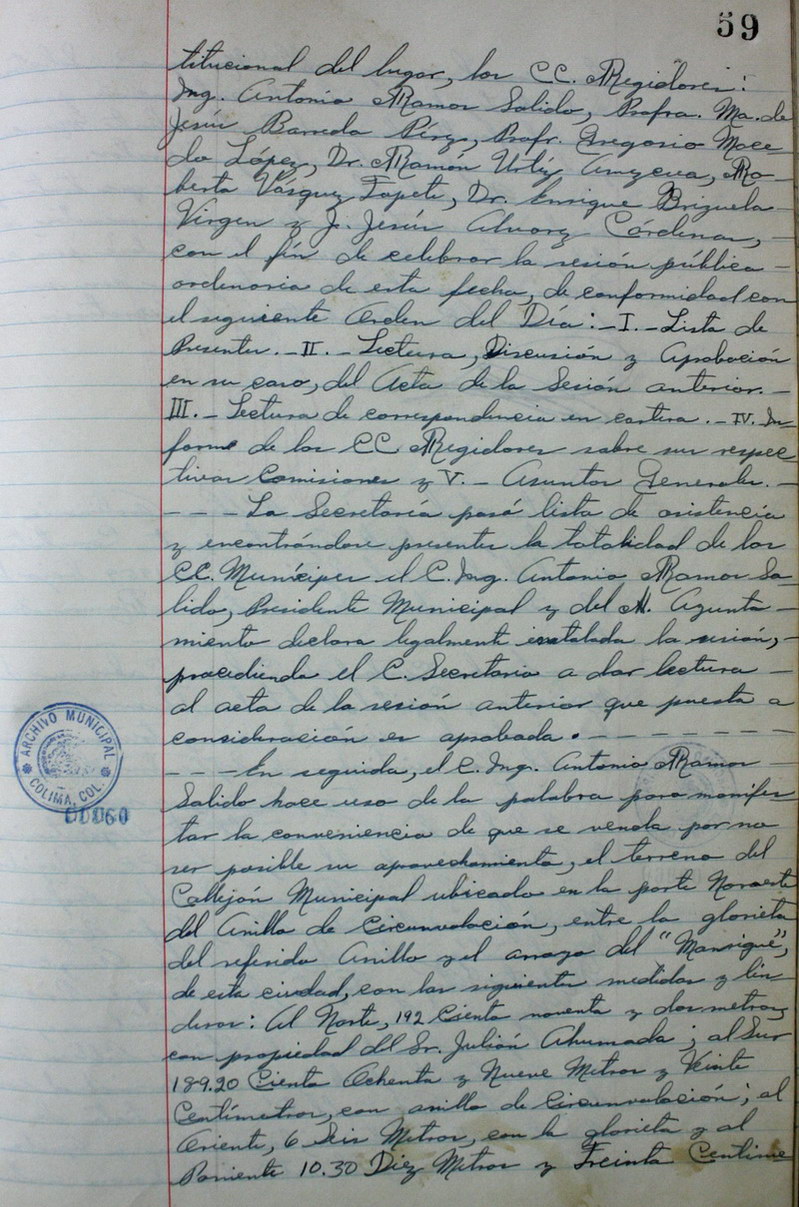 59
titucional del lugar, los CC. Regidores:
Ing. Antonio Ramos Salido, Profra. Ma. de
Jesús Barreda Pérez, Profr. Gregorio Mace-
do López, Dr. Ramón Urtiz Amezcua, Ro-
berto Vásquez Topete, Dr. Enrique Brizuela
Virgen y J. Jesús Alvarez Cárdenas,
con el fin de celebrar la sesión pública
ordenaria de esta fecha, de conformidad con
el seguiente Orden del Día: - I. - Lista de
Presentes. - II. - Lectura, Discusión y Aprobación
en su caso, del Acta de la Sesión anterior. -
III. - Lectura de correspondencia en cartera. - IV. In-
forme de los CC Regidores sobre sus respec-
tivas Comisiones y V. - Asuntos Generales. -
- - - La Secretaría pasó lista de asistencia
y encontrándose presentes la totalidad de los
CC. Munícipes el C. Ing. Antonio Ramos Sa-
lido, Presidente Municipal y del H. Ayunta-
miento declara legalmente instalada la sesión, -
procediendo el C. Secretario a dar lectura -
al acta de la sesión anterior que puesta a
consideración es aprobada. - - - - - - -
- - - En seguida, el C. Ing. Antonio Ramos
Salido hace uso de la palabra para manifes
tar la conveniencia de que se venda por no
ser posible su aprovechamiento, el terreno del
Callejón Municipal ubicado en la parte Noroeste
del Anillo de Circunvalación, entre la glorieta
del referido Anillo y el arroyo del "Manrique",
de esta ciudad, con las siguientes medidas y lin-
deros: Al Norte, 192 Ciento noventa y dos metros,
con propiedad del Sr. Julián Ahumada; al Sur
189.20 Ciento Ochenta y Nueve Metros y Veinte
Centímetros, con anillo de Circunvalación; al
Oriente, 6 Seis Metros, con la glorieta y al
Poniente 10.30 Diez Metros y Treinta Centíme
ARCHIVO MUNICIPAL
COLIMA, COL.
00060